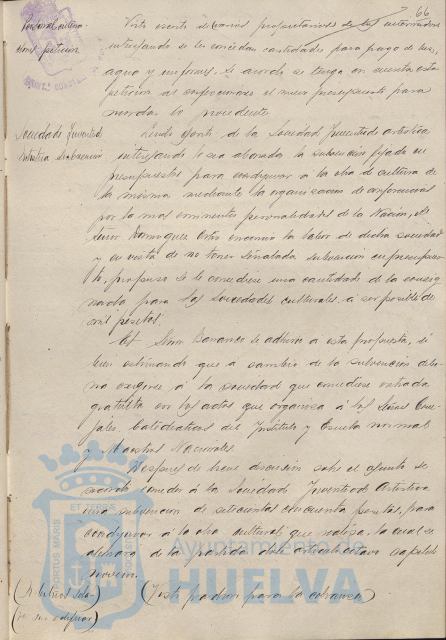 66
Visto escrito de varios propietarios de
interesando se les concedan cantidades para pago de luz,
agua y uniformes, se acordó se tenga en cuenta esta
petición al confeccionarse el nuevo presupuesto para
acordar lo procedente.
Sociedad Juventud
Artística subvención
de la Sociedad Juventud Artística
interesando le sea abonada la subvención fijada en
presupuesto para coadyuvar a la obra de cultura de
la misma mediante la organización de conferencias
por las más eminentes personalidades de la Nación, el
Señor Dominguez Ortiz encomia la labor de dicha sociedad
y en vista de no tener señalada subvención en presupues-
to, propuso se le concediese una cantidad de la consig-
nada para las Sociedades culturales a ser posible de
mil pesetas.
El Señor Bonanco se adhiere a esta propuesta, si
bien estimando que a cambio de la subvención debe-
ría exigirse á la sociedad que concediese entrada
gratuita en los actos que organiza á los Señores Conce-
jales, Catedráticos del Instituto y Escuela normal
y Maestros Nacionales.
Despues de breve discusión sobre el asunto se
acordó conceder á la Sociedad Juventud Artística
una subvención de setecientas cincuenta pesetas, para
coadyuvar á la obra cultural que realiza, la cual se
abonará de la partida doce artículo octavo capítulo
noveno.
(Juste padrón para la cobranza)
PORTUS MARIS ET
Ayuntamiento de
HUELVA